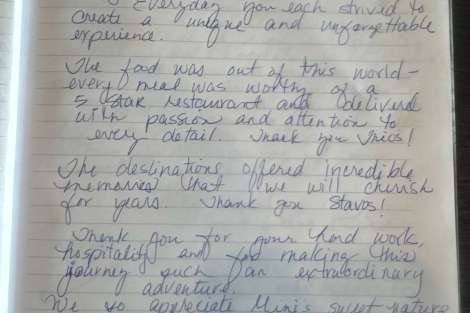 Everyday you each strived to
create a unique and unforgettable
experience.
The food was out of this world -
every meal was worthy of a
5 star restaurant and delivered
with passion and attention to
every detail. Thank you
The destinations offered incredible
memories that we will cherish
for years. Thank you Stavos!
Thank you for your hard work,
hospitality and for making this
journey such an extraordinary
adventure.
We so appreciate Mimi's sweet nature